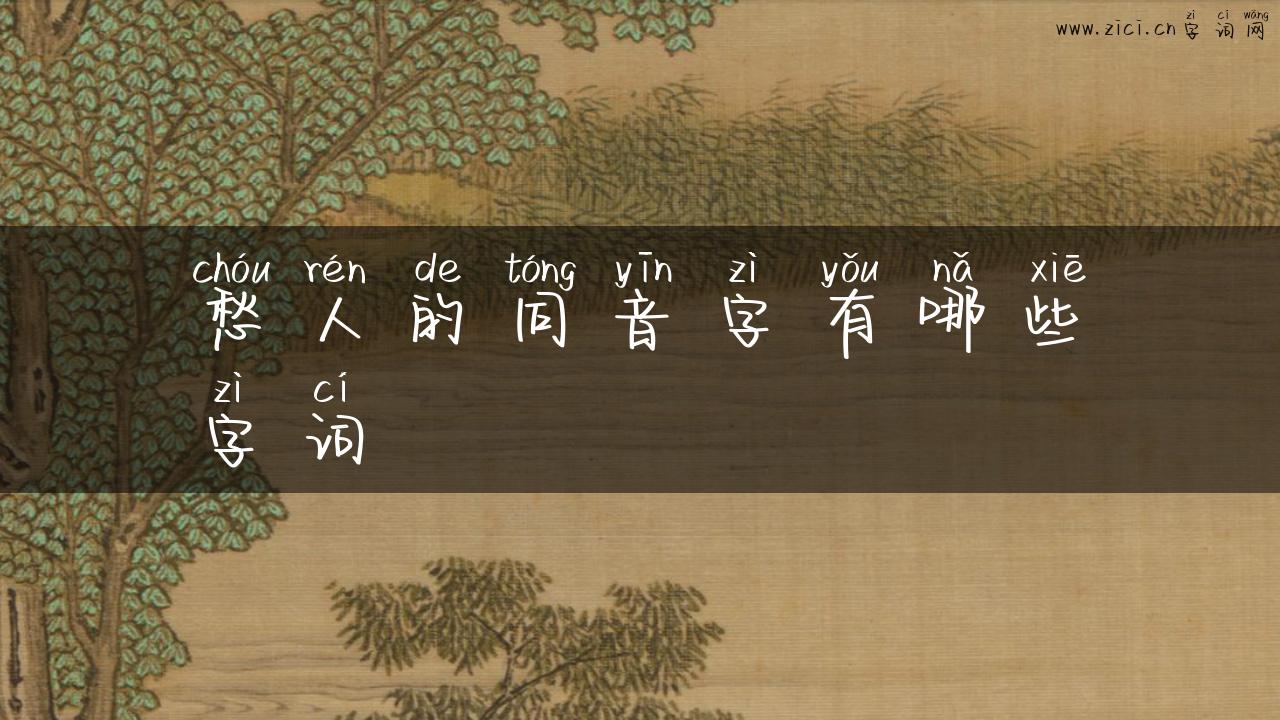 zì cí wǎng
www.zici.cn字词网
chóu rén de tóng yīn zì yǒu nǎ xiē
愁人的同音字有哪些
zì cí
字词